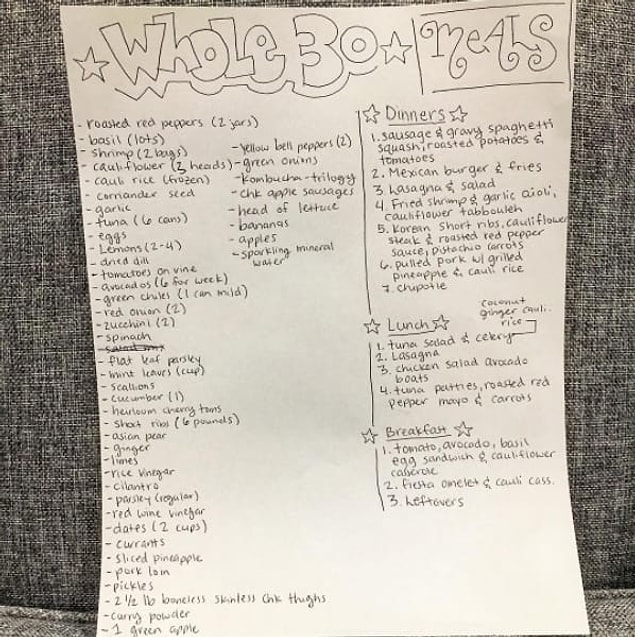 Whole 30 Meals
- roasted red peppers (2 jars)
- basil (lots)
- shrimp (2 bags)
- cauliflower (3 heads)
- cauli rice (frozen)
- corriander seed
- garlic
- tuna (6 cans)
- eggs
- Lemons (2-4)
- dried dill
- tomatoes on vine
- avocados (6 for week)
- green chiles (1 can mild)
- red onion (2)
- zucchini (2)
- spinach
- flat leaf parsley
- mint leaves (cup)
- scallions
- cucumber (1)
- heirloom cherry toms
- short ribs (6 pounds)
- asian pear
- ginger
- limes
- rice vinegar
- cilantro
- parsley (regular)
- red wine vinegar
- dates (2 cups)
- currants
- sliced pineapple
- pork loin
- pickles
- 2 1/2 lb boneless skinless chk thighs
- curry powder
- 1 green apple
- yellow bell peppers (2)
- green onions
- kombucha - trilogy
- chk apple sausages
- head of lettuce
- bananas
- apples
- sparkling mineral
water
Dinners
1. sausage & gravy, spaghetti
squash, roasted potatoes &
tomatoes
2. Mexican burger & fries
3. Lasagna & salad
4. Fried shrimp & garlic aioli,
cauliflower tabbouleh
5. Korean short ribs, cauliflower
steak & roasted red pepper
sauce, pistachio carrots
6. pulled pork w/ grilled
pineapple & cauli rice
7. chipotle
Lunch
coconut
ginger cauli.
rice
1. tuna salad & celery
2. Lasagna
3. chicken salad avocado
boats
4. tuna patties, roasted red
pepper mayo & carrots
Breakfast
1. tomato, avocado, basil
egg sandwich & cauliflower
casserole
2. fiesta omelet & cauli cass.
3. leftovers